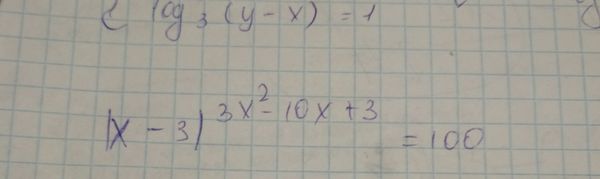 { log₃ (y – x) = 1
|x – 3|^3x² – 10x + 3 = 100